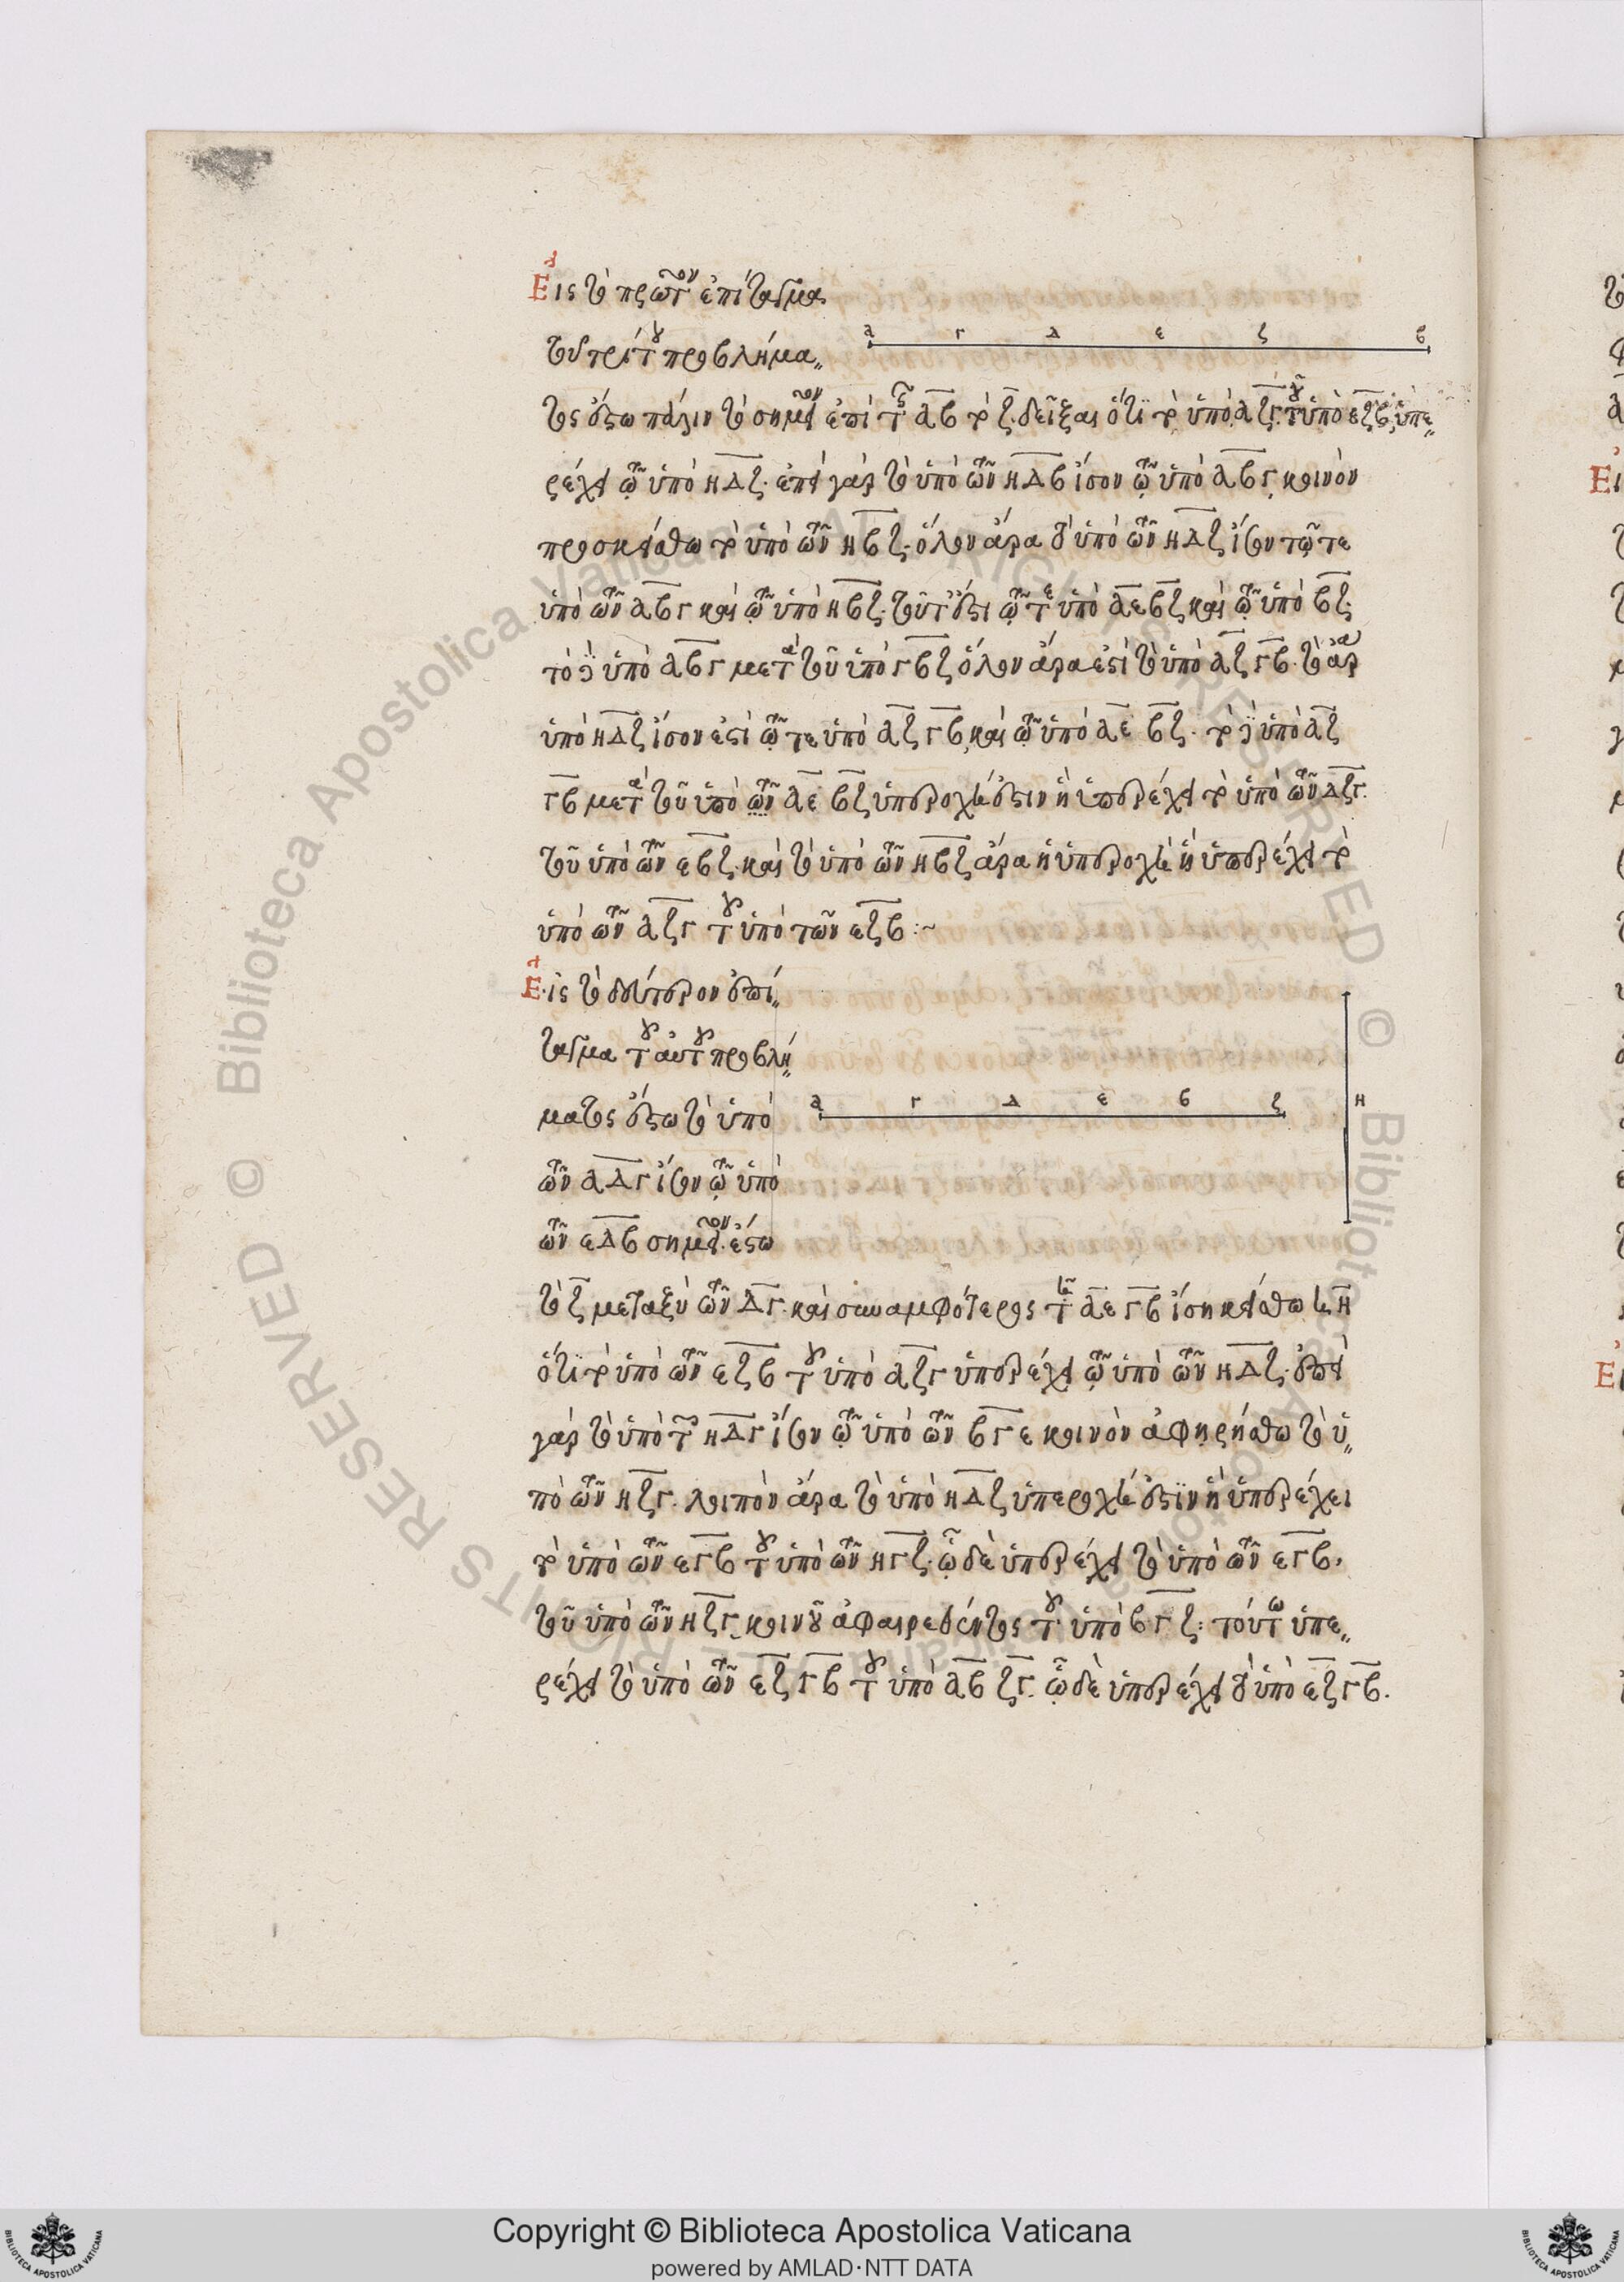 α
Εἰς τὸ πρῶτον ἐπίταγμα
τοῦ τρίτου προβλήμα„
α γ δ ε ζ β
τος ἔστω πάλιν τὸ σημεῖον ἐπὶ τῆς αβ τὸ ζ. δεῖξαι ὅτι τὸ ὑπὸ αζγ. τοῦ ὑπὸ εζβ, ὑπε„
ρέχει τῷ ὑπὸ ηδζ. ἐπεὶ γὰρ τὸ ὑπὸ τῶν ηδβ ἴσον τῷ ὑπὸ αβγ, κοινὸν
προσκείσθω τὸ ὑπὸ τῶν ηβζ. ὅλον ἄρα τὸ ὑπὸ τῶν ηδζ ἴσον τῷ τε
ὑπὸ τῶν αβγ καὶ τῷ ὑπὸ ηβζ. τοῦτ' ἔστι τῷ τε ὑπὸ αεβζ καὶ τῷ ὑπὸ βζ.
τὸ δὲ ὑπὸ αβγ μετὰ τοῦ ὑπὸ γβζ ὅλον ἄρα ἐστὶ τὸ ὑπὸ αζ γβ. τὸ ἄρα
ὑπὸ ηδζ ἴσον ἐστὶ τῷ τε ὑπὸ αζ γβ, καὶ τῷ ὑπὸ αε βζ. τὸ δὲ ὑπὸ αζ
γβ μετὰ τοῦ ὑπὸ τῶν αε βζ ὑπεροχή ἐστιν ᾗ ὑπερέχει τὸ ὑπὸ τῶν αζγ.
τοῦ ὑπὸ τῶν εβζ. καὶ τὸ ὑπὸ τῶν ηβζ ἄρα ἡ ὑπεροχὴ ᾗ ὑπερέχει τὸ
ὑπὸ τῶν αζγ τοῦ ὑπὸ τῶν εζβ :~
α
Εἰς τὸ δεύτερον ἐπί„
ταγμα τοῦ αὐτοῦ προβλή„
ματος ἔστω τὸ ὑπὸ
α γ δ ε β ζ η
τῶν αδγ ἴσον τῷ ὑπὸ
τῶν εδβ σημεῖον. ἔστω
τὸ ζ μεταξὺ τῶν δγ. καὶ συναμφότερος τῇ αε γβ ἴση κείσθω ἡ η
ὅτι τὸ ὑπὸ τῶν εζβ τοῦ ὑπὸ αζγ ὑπερέχει τῷ ὑπὸ τῶν ηδζ. ἐπεὶ
γὰρ τὸ ὑπὸ τῶν ηδγ ἴσον τῷ ὑπὸ τῶν βγε κοινὸν ἀφῃρήσθω τὸ ὑ„
πὸ τῶν ηζγ. λοιπὸν ἄρα τὸ ὑπὸ ηδζ ὑπεροχή ἐστιν ᾗ ὑπερέχει
τὸ ὑπὸ τῶν εγβ τοῦ ὑπὸ τῶν ηγζ. ᾧ δὲ ὑπερέχει τὸ ὑπὸ τῶν εγβ,
τοῦ ὑπὸ τῶν ηζγ, κοινοῦ ἀφαιρεθέντος τοῦ ὑπὸ βγζ: τούτω ὑπε„
ρέχει τὸ ὑπὸ τῶν εζ γβ τοῦ ὑπὸ αβ ζγ. ᾧ δὲ ὑπερέχει τὸ ὑπὸ εζ γβ.
Copyright © Biblioteca Apostolica Vaticana
powered by AMLAD·NTT DATA